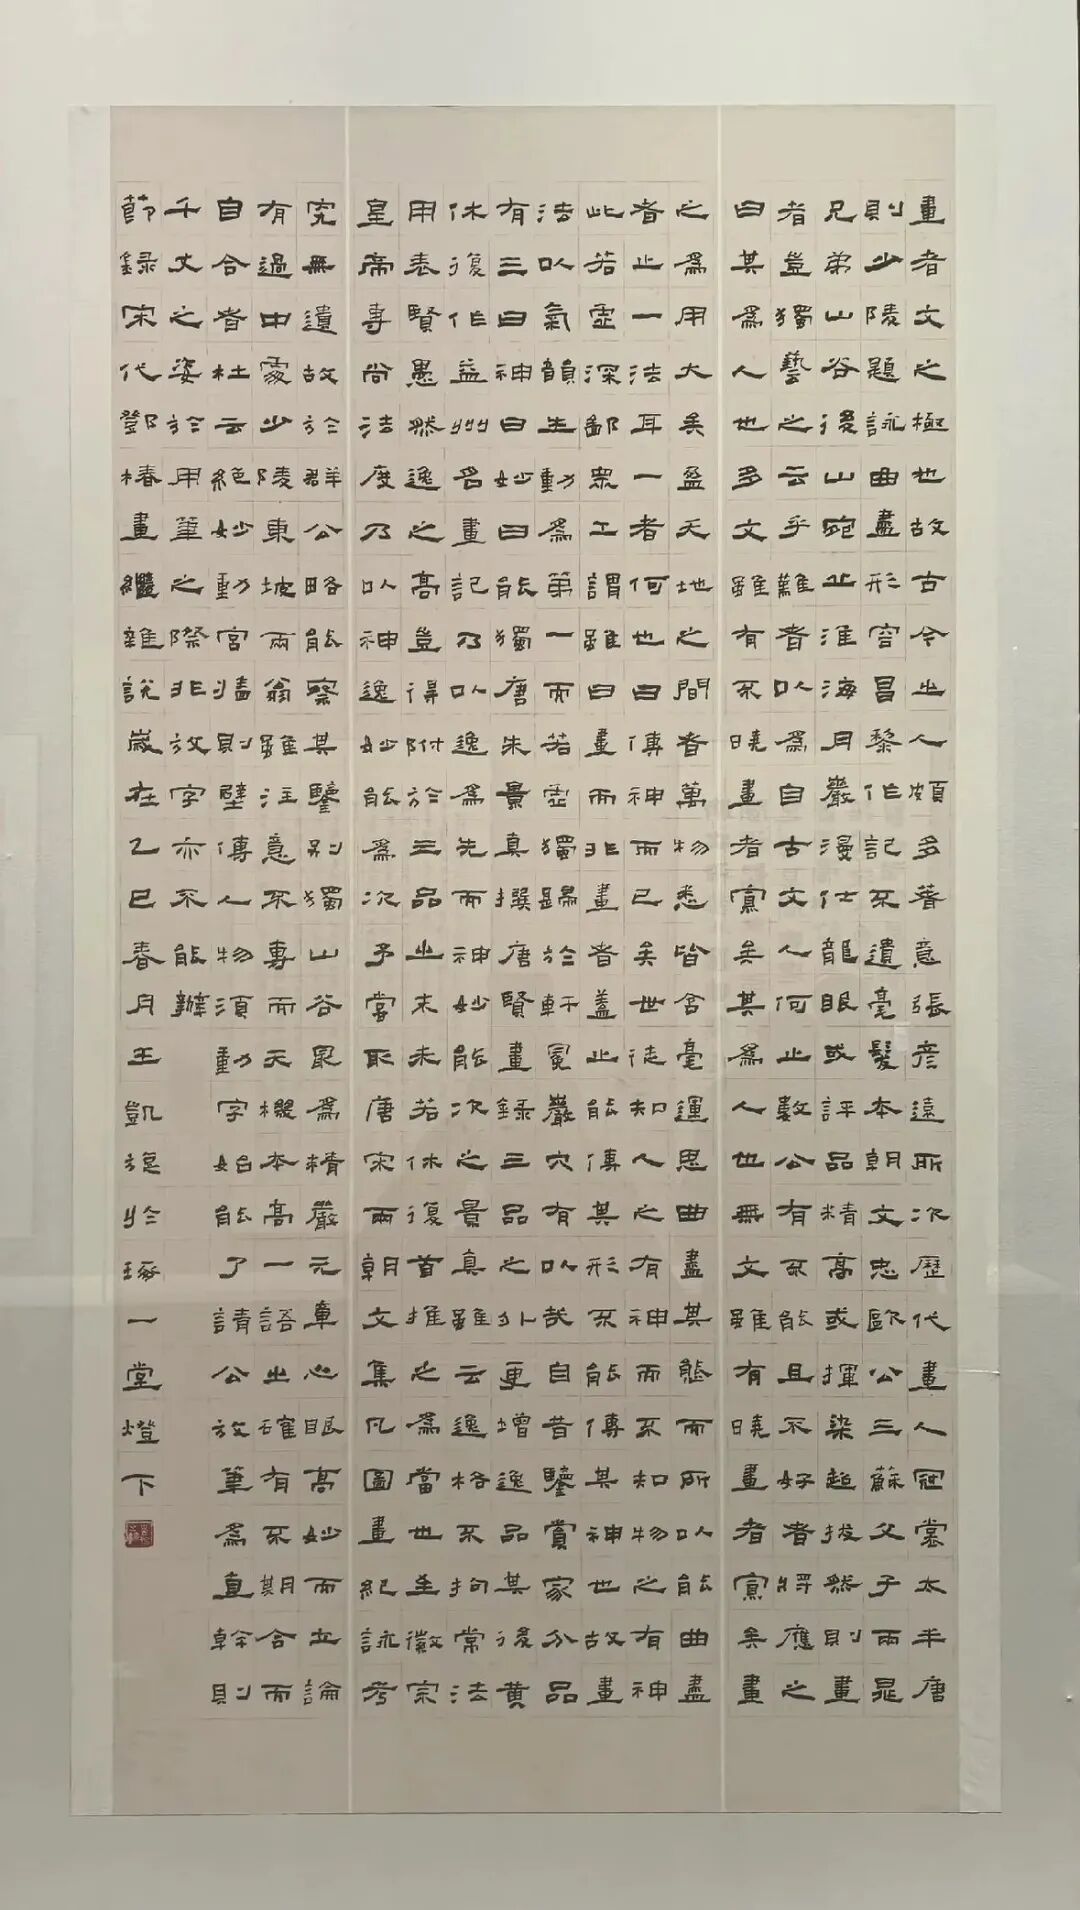 畫者文之極也故古今之人頗多著意張彥遠所次歷代畫人冠裳太半唐
則少陵題詠曲盡形容昌黎作記不遺毫髮本朝文忠歐公三蘇父子兩晁
兄弟山谷後山宛丘淮海月巖漫仕龍眠或評品精高或揮染超拔然則畫
者豈獨藝之云乎難者以為自古文人何止數公有不能且不好者將應之
曰其為人也多文雖有不曉畫者寡矣其為人也無文雖有曉畫者寡矣畫
之為用大矣盈天地之間者萬物悉皆含毫運思曲盡其態而所以能曲盡
者止一法耳一者何也曰傳神而已矣世徒知人之有神而不知物之有神
此若虛深鄙眾工謂雖曰畫而非畫者蓋止能傳其形不能傳其神也故畫
法以氣韻生動為第一而若虛獨歸於軒冕巖穴有以哉自昔鑒賞家分品
有三曰神曰妙曰能獨唐朱景真撰唐賢畫錄三品之外更增逸品其後黃
休復作益州名畫記乃以逸為先而神妙能次之景真雖云逸格不拘常法
用表賢愚然逸之高豈得附於三品之末未若休復首推之為當世至徽宗
皇帝專尚法度乃以神逸妙能為次予嘗取唐宋兩朝文集凡圖畫紀詠考
究無遺故於群公略能察其鑒別獨山谷最為精嚴元章心眼高妙而立論
有過中處少陵東坡兩翁雖注意不專而天機本高一語之確有不期合而
自合者杜云絕妙動宮牆則壁傳人物須動字始能了請公放筆為直幹則
千丈之姿於用筆之際非放字亦不能辦
節錄宋代鄧椿畫繼雜說歲在乙巳春月王凱旋於琢一堂燈下